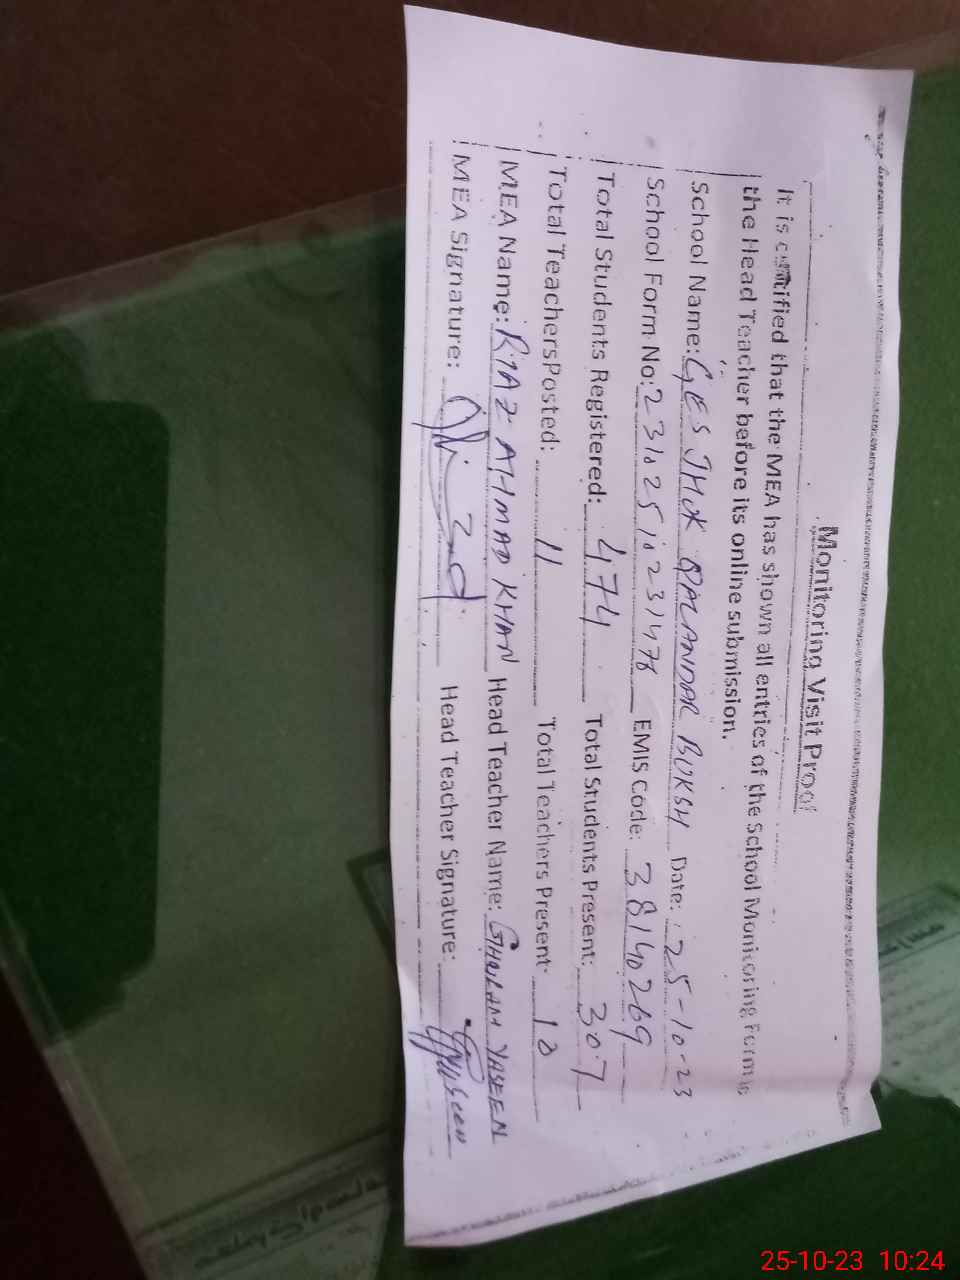 Monitoring Visit Proof
It is certified that the MEA has shown all entries of the School Monitoring Form to
the Head Teacher before its online submission.
School Name: GES JHOK QALANDAR BUKSH Date: 25-10-23
School Form No: EMIS Code: 38140269
Total Students Registered: 474 Total Students Present: 307
Total TeachersPosted: 11 Total Teachers Present: 10
MEA Name: RIAZ AHMAD KHAN Head Teacher Name: GHULAM YASEEN
MEA Signature: Head Teacher Signature: GYaseen
25-10-23 10:24